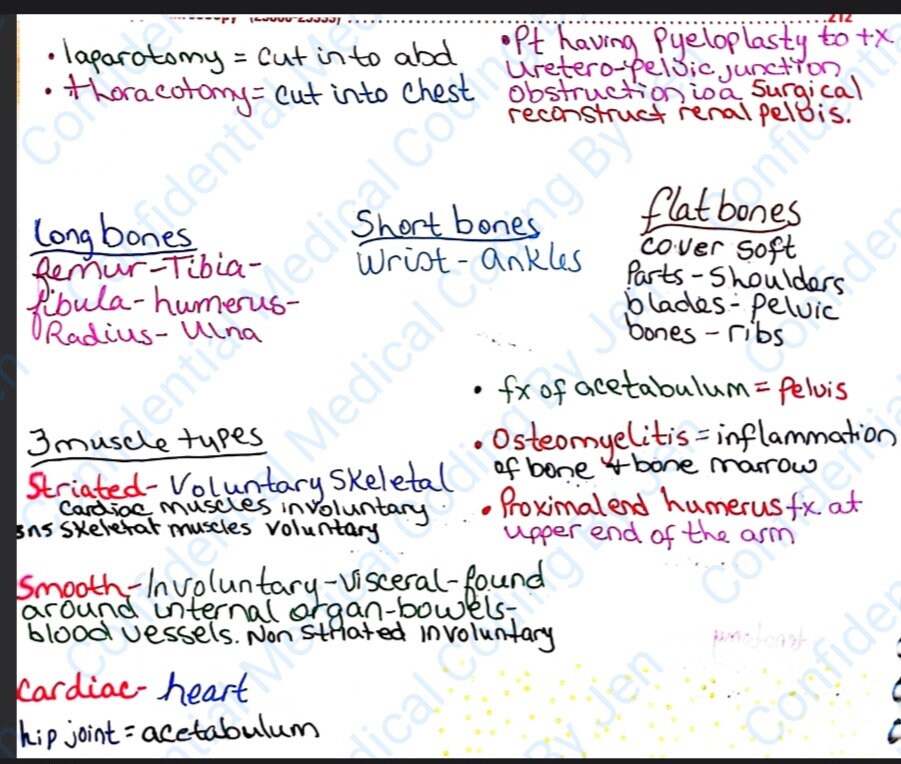 • laparotomy = cut into abd
• thoracotomy = cut into chest
• Pt having Pyeloplasty to tx
uretero-pelvic junction
obstruction is a Surgical
reconstruct renal pelvis.
Long bones
femur-Tibia-
fibula-humerus-
Radius-Ulna
Short bones
Wrist - ankles
flat bones
cover soft
Parts - Shoulders
blades - pelvic
bones - ribs
• fx of acetabulum = pelvis
• Osteomyelitis = inflammation
of bone + bone marrow
• Proximal end humerus fx at
upper end of the arm
3 muscle types
Striated - Voluntary Skeletal
Cardiac muscles involuntary
skeletal muscles voluntary
Smooth - Involuntary - visceral - found
around internal organ - bowels -
blood vessels. Non striated involuntary
Cardiac - heart
hip joint = acetabulum
Confidential Medical Coding By Jen